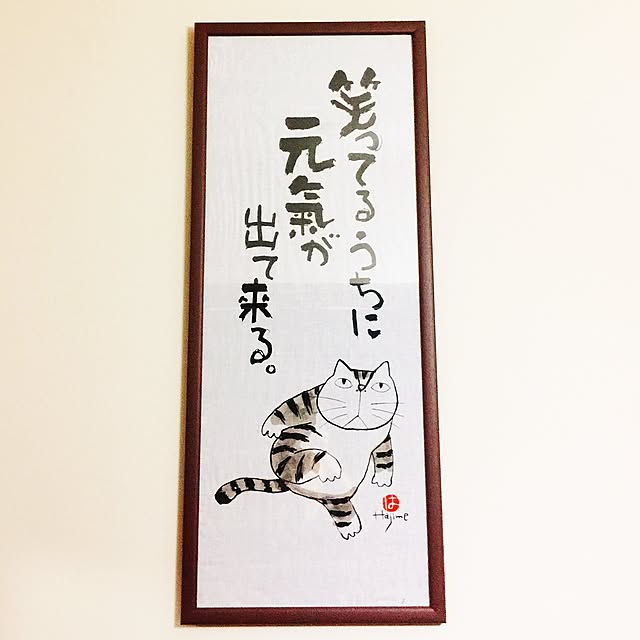 笑ってるうちに
元氣が
出て来る。
は
Hajime